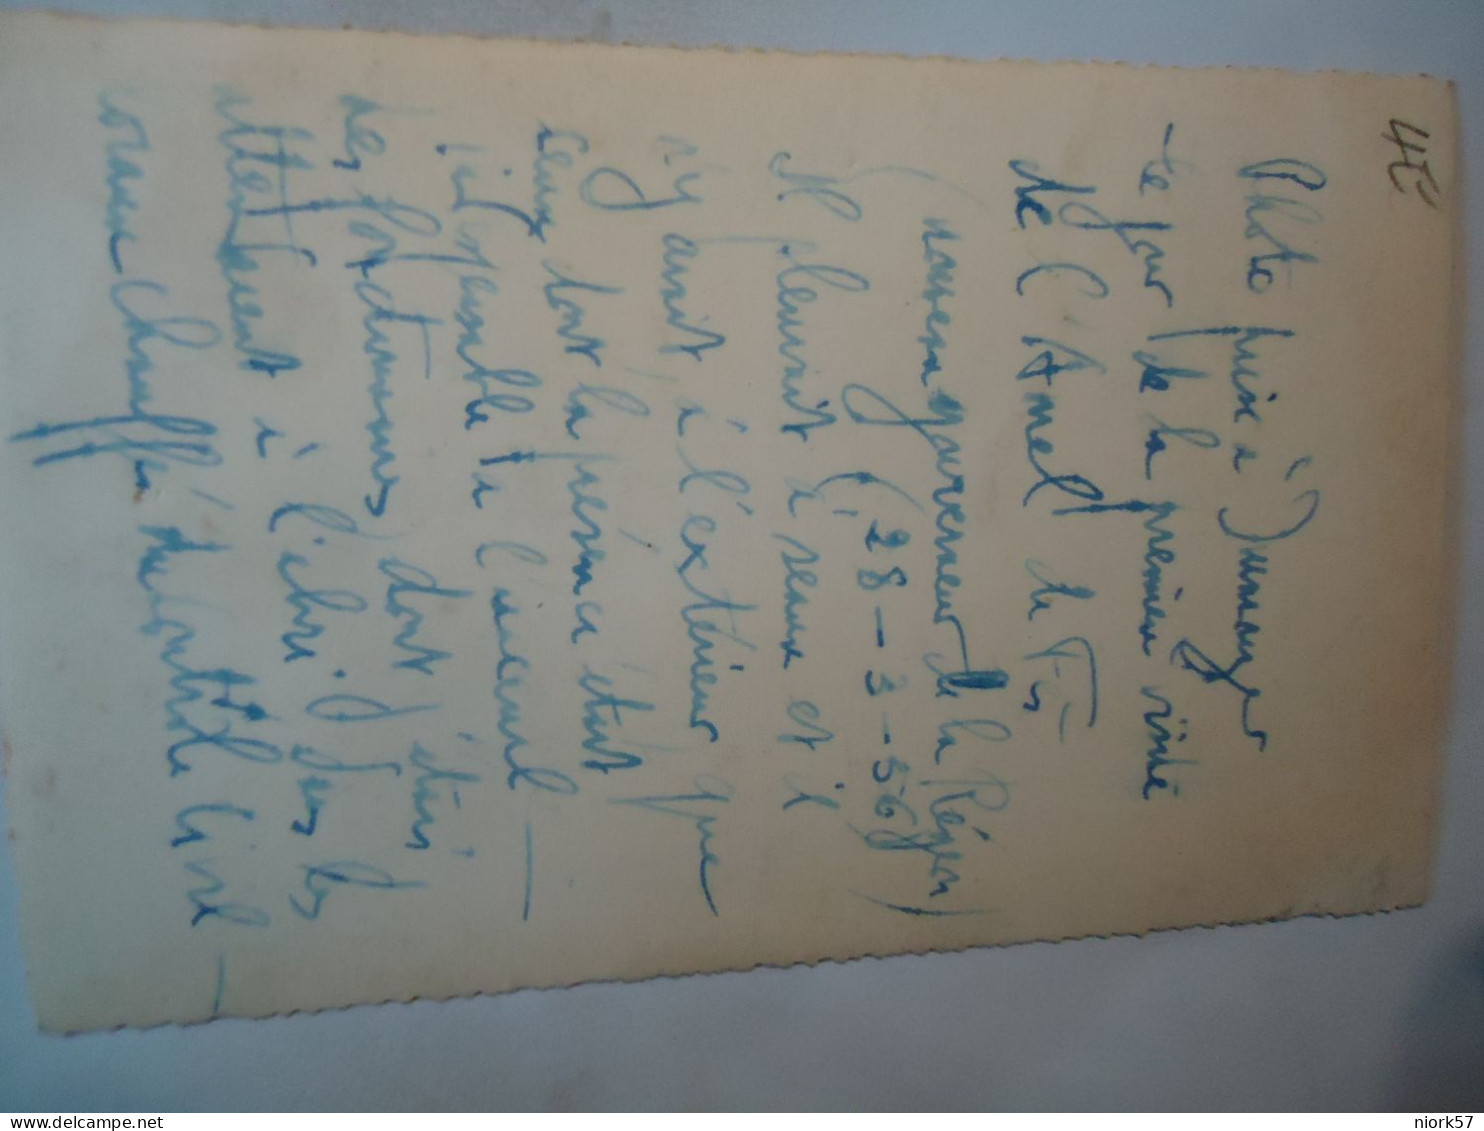 4E
Photo prise à Immouzer
le jour de la première visite
de l'Amel de Fès
(nouveau gouverneur de la Région)
(28-3-56)
Il pleuvait à seaux et il
n'y avait à l'extérieur que
ceux dont la présence était
indispensable à l'accueil —
des fonctionnaires dont j'étais
attendaient à l'abri dans les
bureaux chauffés du contrôle civil —
niork57